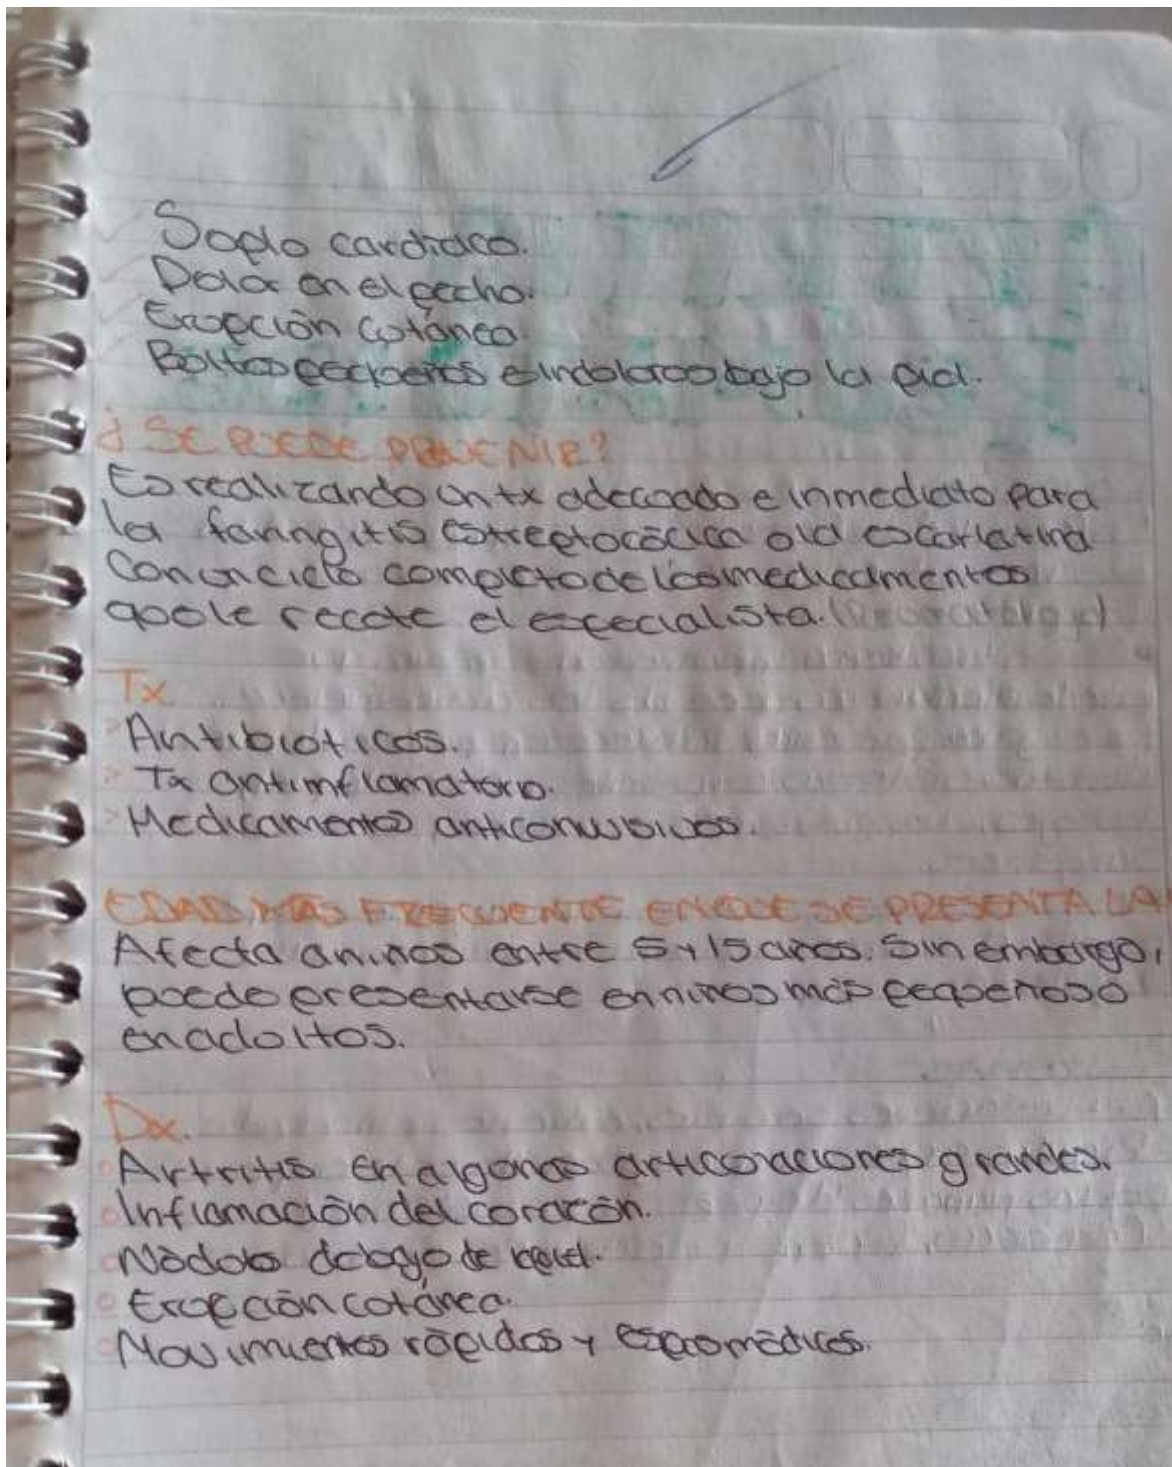 Soplo cardiaco.
Dolor en el pecho.
Erupción cutánea.
Bultos pequeños e indoloros bajo la piel.
¿SE PUEDE PREVENIR?
Es realizando un tx adecuado e inmediato para
la faringitis estreptocócica o la escarlatina
Con un ciclo completo de los medicamentos
que le recete el especialista.
Tx
Antibioticos.
Tx antiinflamatorio.
Medicamentos anticonvulsivos.
EDAD MÁS FRECUENTE EN QUE SE PRESENTA LA
Afecta a niños entre 5 y 15 años. Sin embargo,
puede presentarse en niños más pequeños o
en adultos.
Dx.
Artritis en algunas articulaciones grandes.
Inflamación del corazón.
Nódulos debajo de la piel.
Erupción cutánea.
Movimientos rápidos y espasmódicos.